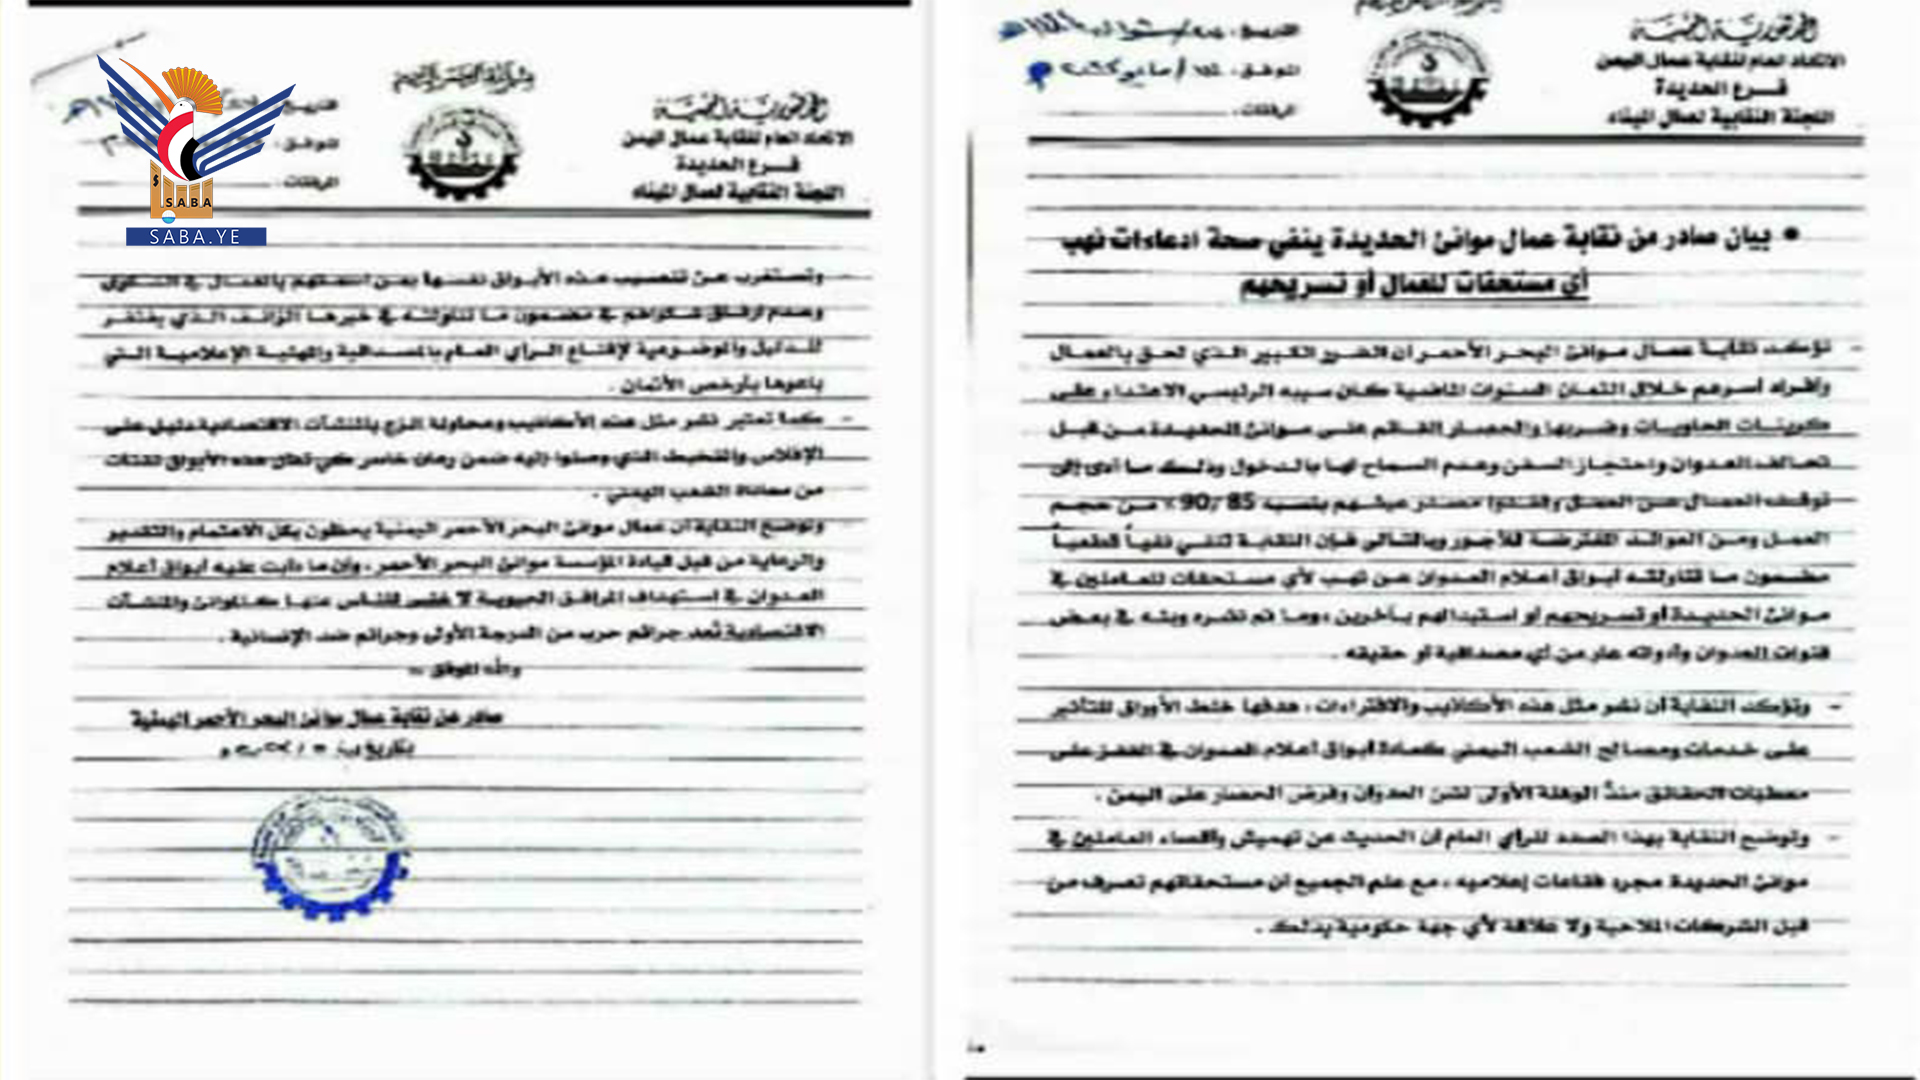 بسم الله الرحمن الرحيم
الجمهورية اليمنية
الاتحاد العام لنقابة عمال اليمن
فرع الحديدة
اللجنة النقابية لعمال الميناء
التاريخ:
الموافق:
المرفقات:
• بيان صادر من نقابة عمال موانئ الحديدة ينفي صحة ادعاءات نهب
أي مستحقات للعمال أو تسريحهم
- تؤكد نقابة عمال موانئ البحر الأحمر أن الضرر الكبير الذي لحق بالعمال
وأفراد أسرهم خلال الثمان السنوات الماضية كان سببه الرئيسي الاعتداء على
كرينات الحاويات وضربها والحصار القائم على موانئ الحديدة من قبل
تحالف العدوان واحتجاز السفن وعدم السماح لها بالدخول وذلك ما أدى إلى
توقف العمال عن العمل وفقدوا مصدر عيشهم بنسبة 85 /90٪ من حجم
العمل ومن العوائد المفترضة للأجور وبالتالي فإن النقابة تنفي نفياً قطعياً
مضمون ما تناولته أبواق أعلام العدوان عن نهب لأي مستحقات للعاملين في
موانئ الحديدة أو تسريحهم أو استبدالهم بآخرين ، وما تم نشره وبثه في بعض
قنوات العدوان وأدواته عار من أي مصداقية أو حقيقه .
- وتؤكد النقابة أن نشر مثل هذه الأكاذيب والافتراءات ، هدفها خلط الأوراق للتأثير
على خدمات ومصالح الشعب اليمني كعادة أبواق أعلام العدوان في القفز على
معطيات الحقائق منذُ الوهلة الأولى لشن العدوان وفرض الحصار على اليمن .
- وتوضح النقابة بهذا الصدد للرأي العام أن الحديث عن تهميش وأقصاء العاملين في
موانئ الحديدة مجرد فقاعات إعلاميه ، مع علم الجميع أن مستحقاتهم تصرف من
قبل الشركات الملاحية ولا علاقة لأي جهة حكومية بذلك .
بسم الله الرحمن الرحيم
الجمهورية اليمنية
الاتحاد العام لنقابة عمال اليمن
فرع الحديدة
اللجنة النقابية لعمال الميناء
الموافق:
المرفقات:
SABA
SABA.YE
وتستغرب عن تنصيب هذه الأبواق نفسها بمن اسمتهم بالعمال في الشكوى
وعدم ارفاق شكواهم في مضمون ما تناولته في خبرها الزائف الذي يفتقر
للدليل والموضوعية لإقناع الرأي العام بالمصداقية والمهنية الإعلامية التي
باعوها بأرخص الأثمان .
- كما تعتبر نشر مثل هذه الأكاذيب ومحاولة الزج بالمنشآت الاقتصادية دليل على
الإفلاس والتخبط الذي وصلوا إليه ضمن رهان خاسر كي تظل هذه الأبواق تقتات
من معاناة الشعب اليمني .
وتوضح النقابة أن عمال موانئ البحر الأحمر اليمنية يحظون بكل الاهتمام والتقدير
والرعاية من قبل قيادة المؤسسة موانئ البحر الأحمر ، وأن ما دأبت عليه أبواق أعلام
العدوان في استهداف المرافق الحيوية لا غنى للناس عنها كالموانئ والمنشآت
الاقتصادية تُعد جرائم حرب من الدرجة الأولى وجرائم ضد الإنسانية .
والله الموفق ..
صادر عن نقابة عمال موانئ البحر الأحمر اليمنية
بتاريخ